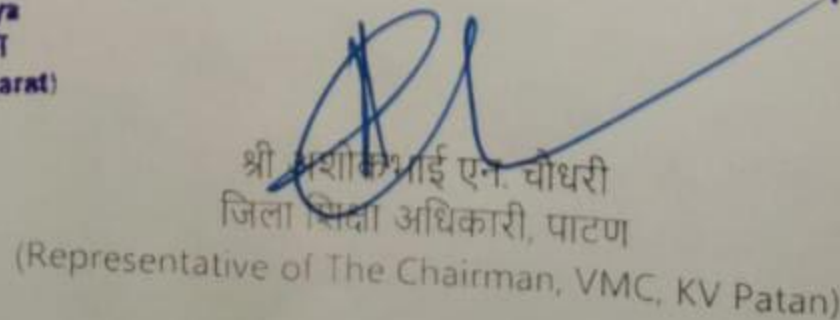 arat)
श्री अशोकभाई एन. चौधरी
जिला शिक्षा अधिकारी, पाटण
(Representative of The Chairman, VMC, KV Patan)